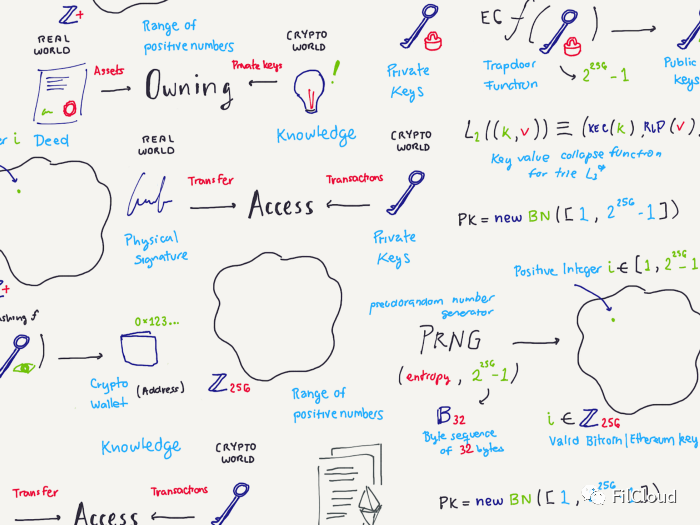 Z+
Range of
positive numbers
REAL
WORLD
Assets
Owning
Private keys
CRYPTO
WORLD
Knowledge
Deed
Private
Keys
EC f( )
Trapdoor
Function
2^256-1
Public
keys
L2((k,v)) ≡ (KEC(k), RLP(v)
Key value collapse function
for trie L3*
REAL
WORLD
Physical
Signature
Transfer
Access
Transactions
CRYPTO
WORLD
Private
Keys
PK = new BN([1, 2^256-1])
Positive Integer i ∈ [1, 2^256-1
er i
Z+
ashing f
)
0x123...
Crypto
Wallet
(Address)
Z256
Range of
positive numbers
pseudorandom number
generator
PRNG
(entropy, 2^256-1)
B32
Byte sequence
of 32 bytes
i ∈ Z256
Valid Bitcoin|Ethereum key
Knowledge
CRYPTO
WORLD
Transfer
Access
Transactions
PK = new BN([1, 2^256-1])
FilCloud